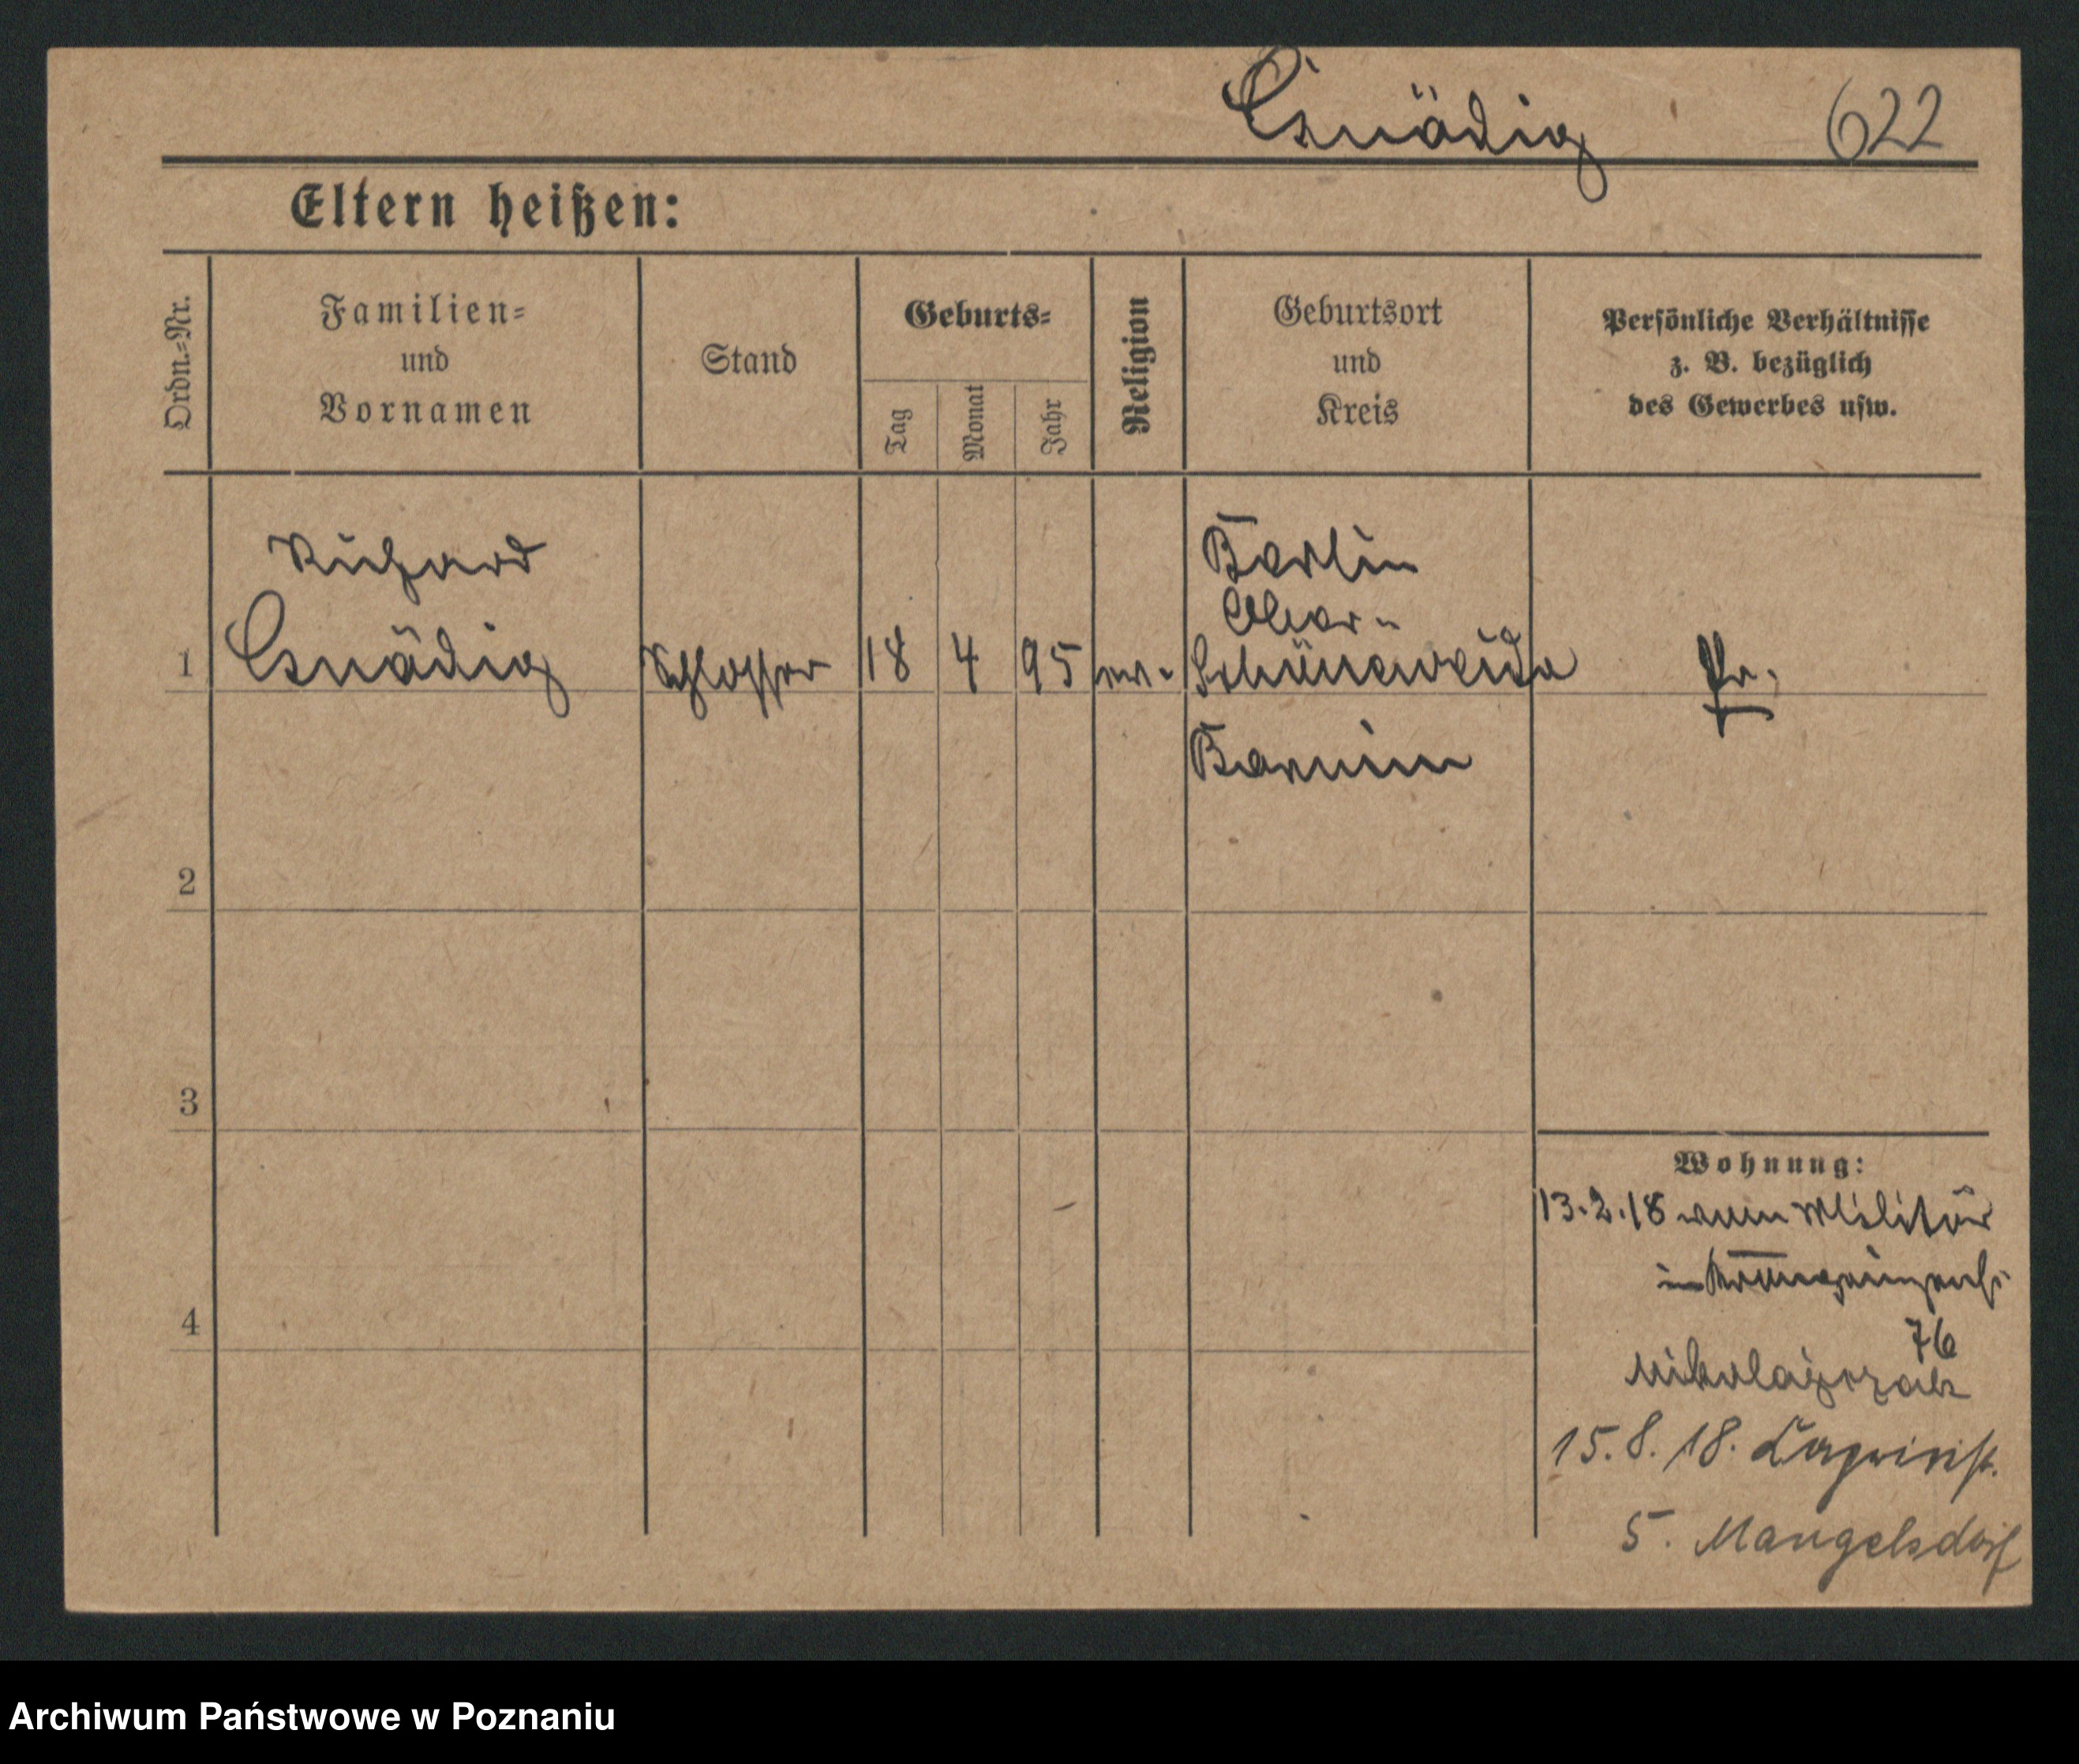 Gnädig 622
Eltern heißen:
Ordn.=Nr.
Familien=
und
Vornamen
Stand
Geburts=
Tag
Monat
Jahr
Religion
Geburtsort
und
Kreis
Persönliche Verhältnisse
z. B. bezüglich
des Gewerbes usw.
Richard
1 Gnädig Schlosser 18 4 95 ev. Berlin
Ober-
Schöneweide Pr.
Barnim
2
3
4
Wohnung:
13.2.18 vom Militär
76
Mikolajczak
15.8.18.
5. Mangelsdorf
Archiwum Państwowe w Poznaniu